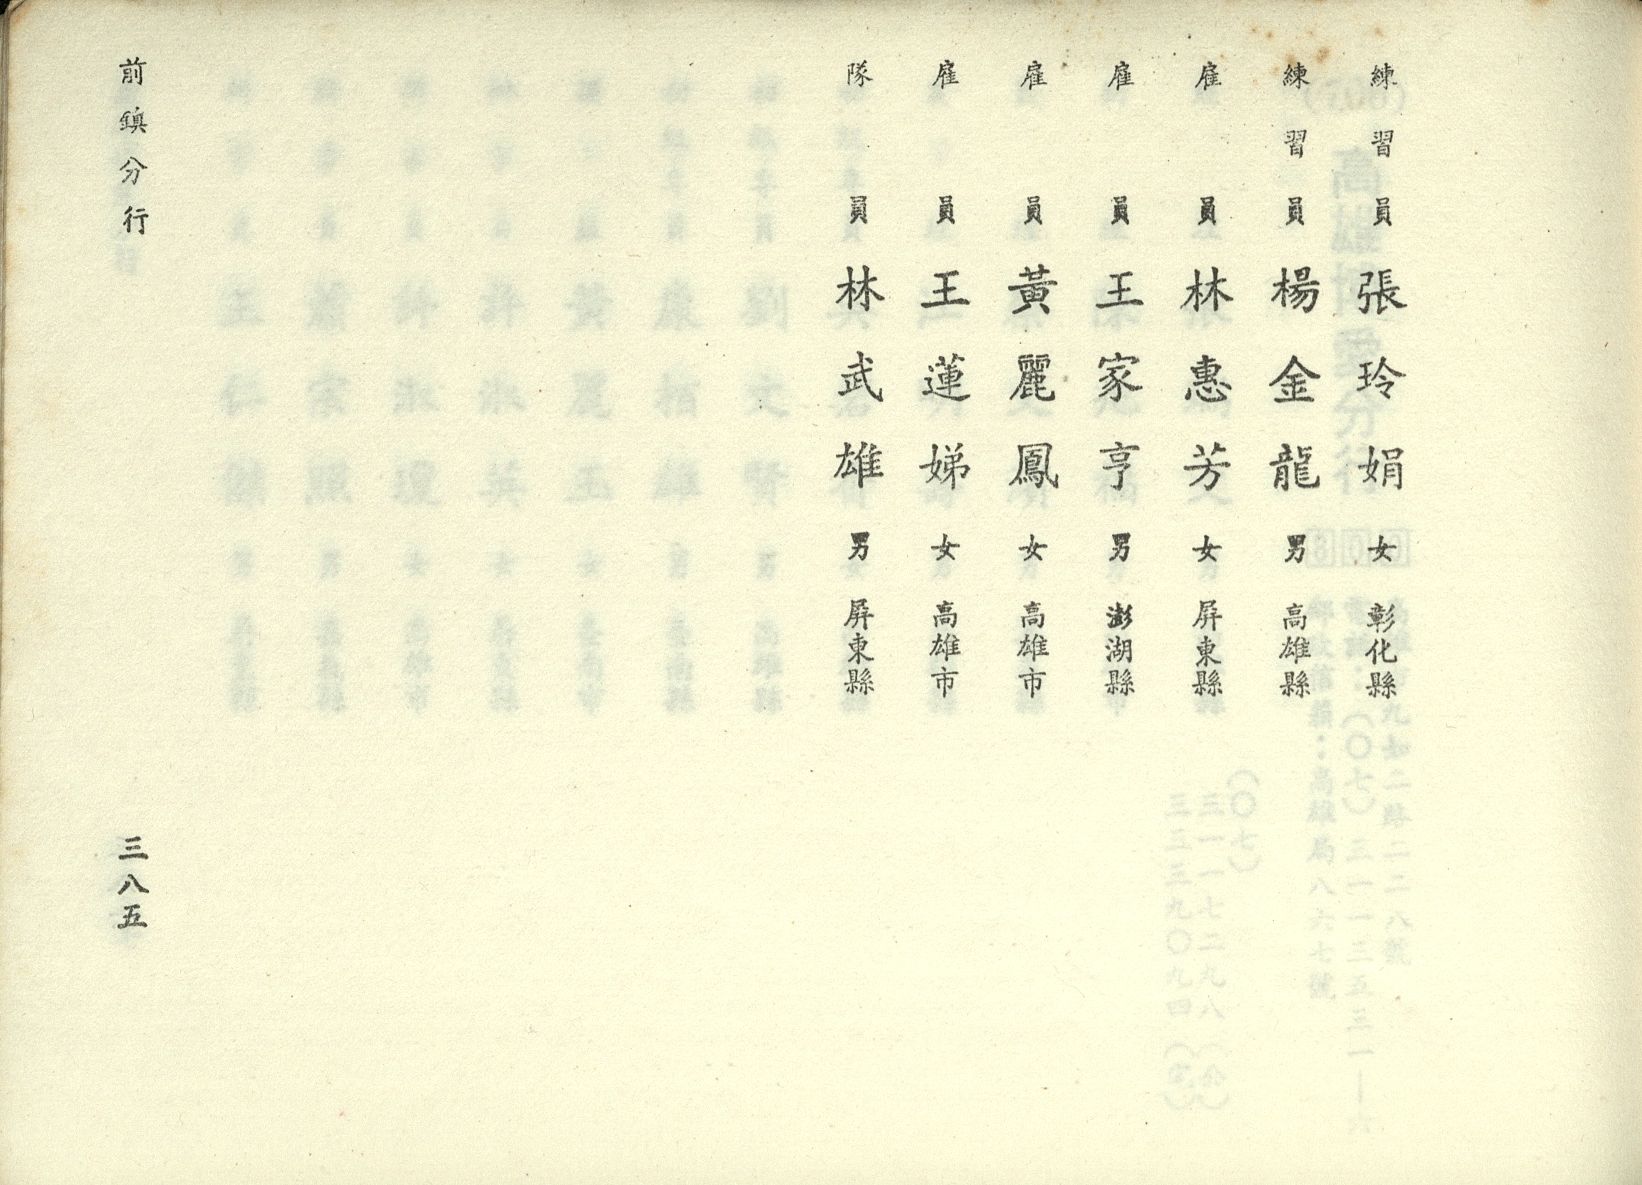 練習員 張玲娟 女 彰化縣
練習員 楊金龍 男 高雄縣
雇員 林惠芳 女 屏東縣
雇員 王家亨 男 澎湖縣
雇員 黃麗鳳 女 高雄市
雇員 王蓮娣 女 高雄市
隊員 林武雄 男 屏東縣
前鎮分行
三八五